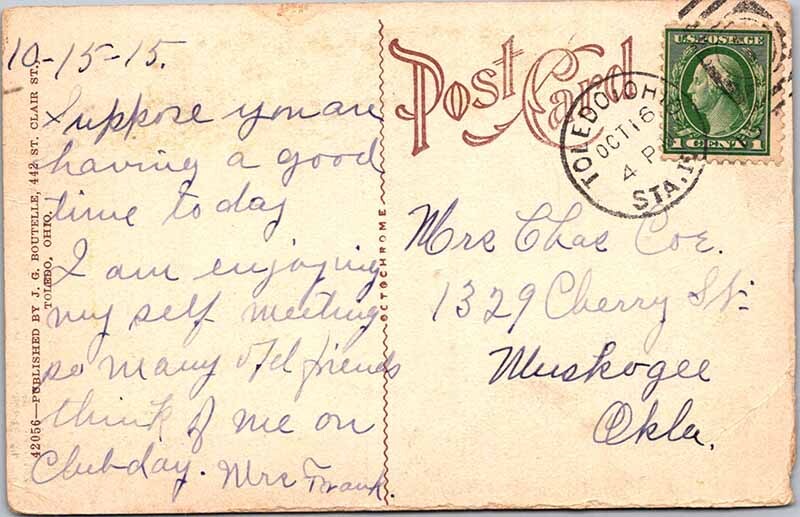 10-15-15.
Suppose you are
having a good
time today
I am enjoying
my self meeting
so many old friends
think of me on
Club day. Mrs Frank.
42056—PUBLISHED BY J. G. BOUTELLE, 442 ST. CLAIR ST.,
TOLEDO, OHIO.
OCTOCHROME
Post Card
TOLEDO, OHI
OCT 16
4 P
STA.
U.S. POSTAGE
1 CENT 1
Mrs Chas Coe.
1329 Cherry St.
Muskogee
Okla.